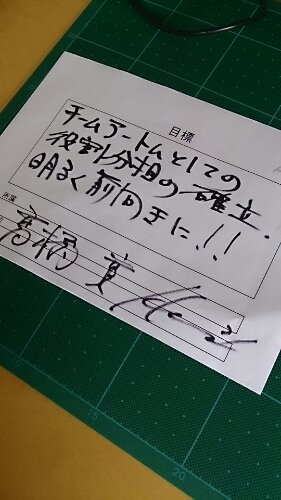 目標
チームアートムとしての
役割分担の確立.
明るく前向きに!!
高橋
15
20